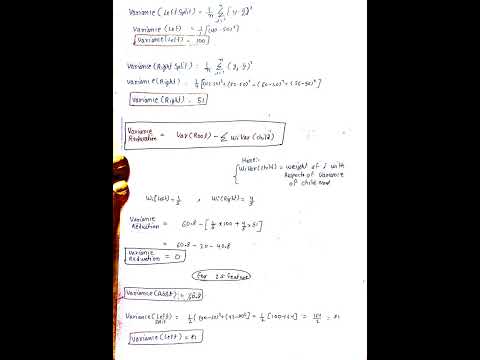 Variance (Left Split) = 1/n Σ (y - ȳ)²
Variance (Left) = 1/1 [(40-50)²]
Variance (Left) = 100
Variance (Right Split) : 1/n Σ (yi - ȳ)²
Variance (Right) :
Variance (Right) = 51
Variance Reduction = Var (Root) - Σ wi Var (child)
Here:-
wi Var (child) = weight of i with
Respect of variance
of child Node
Wi (Left) = 1/5 , Wi (Right) = 4/5
Variance Reduction = 60.8 - [1/5 x 100 + 4/5 x 51]
= 60.8 - 20 - 40.8
Variance Reduction = 0
For 2.5 Feature
Variance (Root) = 60.8
Variance (Left Split) = = 1/2 [100+64] = 164/2 = 82
Variance (Left) =